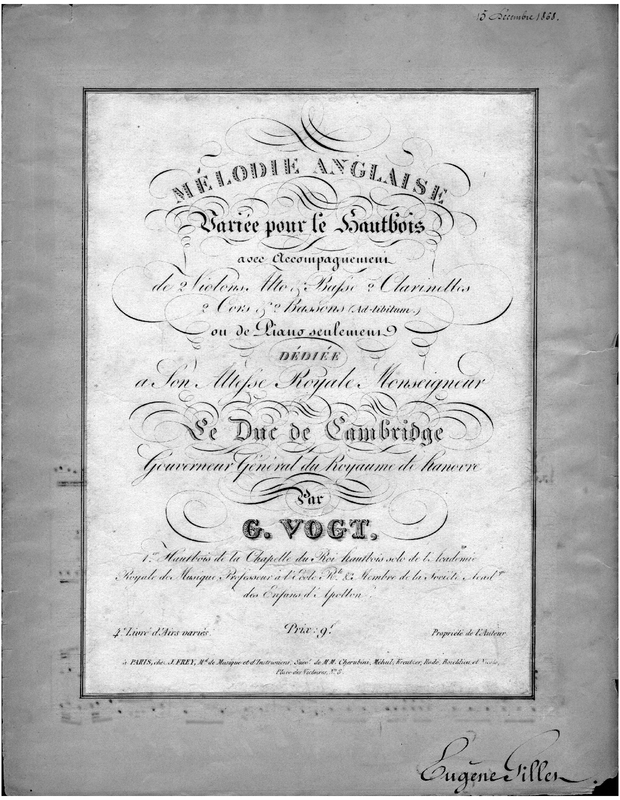 15 Décembre 1868.
MÉLODIE ANGLAISE
Variée pour le Hautbois
avec Accompagnement
de 2 Violons, Alto & Basse 2 Clarinettes
2 Cors & 2 Bassons (Ad-libitum.)
ou de Piano seulement
DÉDIÉE
a Son Altesse Royale Monseigneur
Le Duc de Cambridge
Gouverneur Général du Royaume de hanovre
Par
G. VOGT,
1er Hautbois de la Chapelle du Roi hautbois solo de l'Académie
Royale de Musique Professeur à l'École Rle & Membre de la Société Acadque
des Enfans d'Apollon.
4e Livre d'Airs variés.
Prix: 9f
Propriété de l'Auteur
à PARIS, chez J. FREY, Md de Musique et d'Instrumens, Succr de MM. Cherubini, Méhul, Kreutzer, Rode, Boieldieu et
Place des Victoires, No 8.
Eugène Gilles